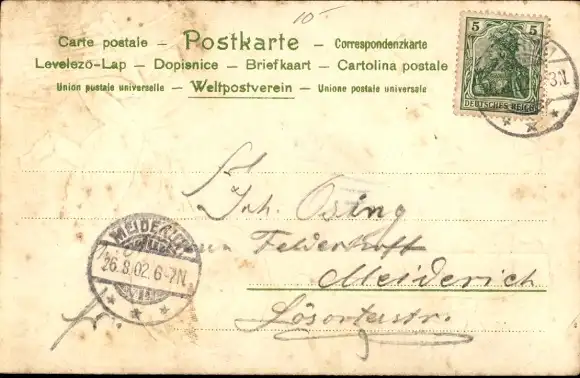 10
Carte postale – Postkarte – Correspondenzkarte
Levelezö-Lap – Dopisnice – Briefkaart – Cartolina postale
Union postale universelle – Weltpostverein – Unione postale universale
5 5
DEUTSCHES REICH
3N
Joh. Osing
Feldenhoff
Meiderich
MEIDERICH
26.8.02.6-7N